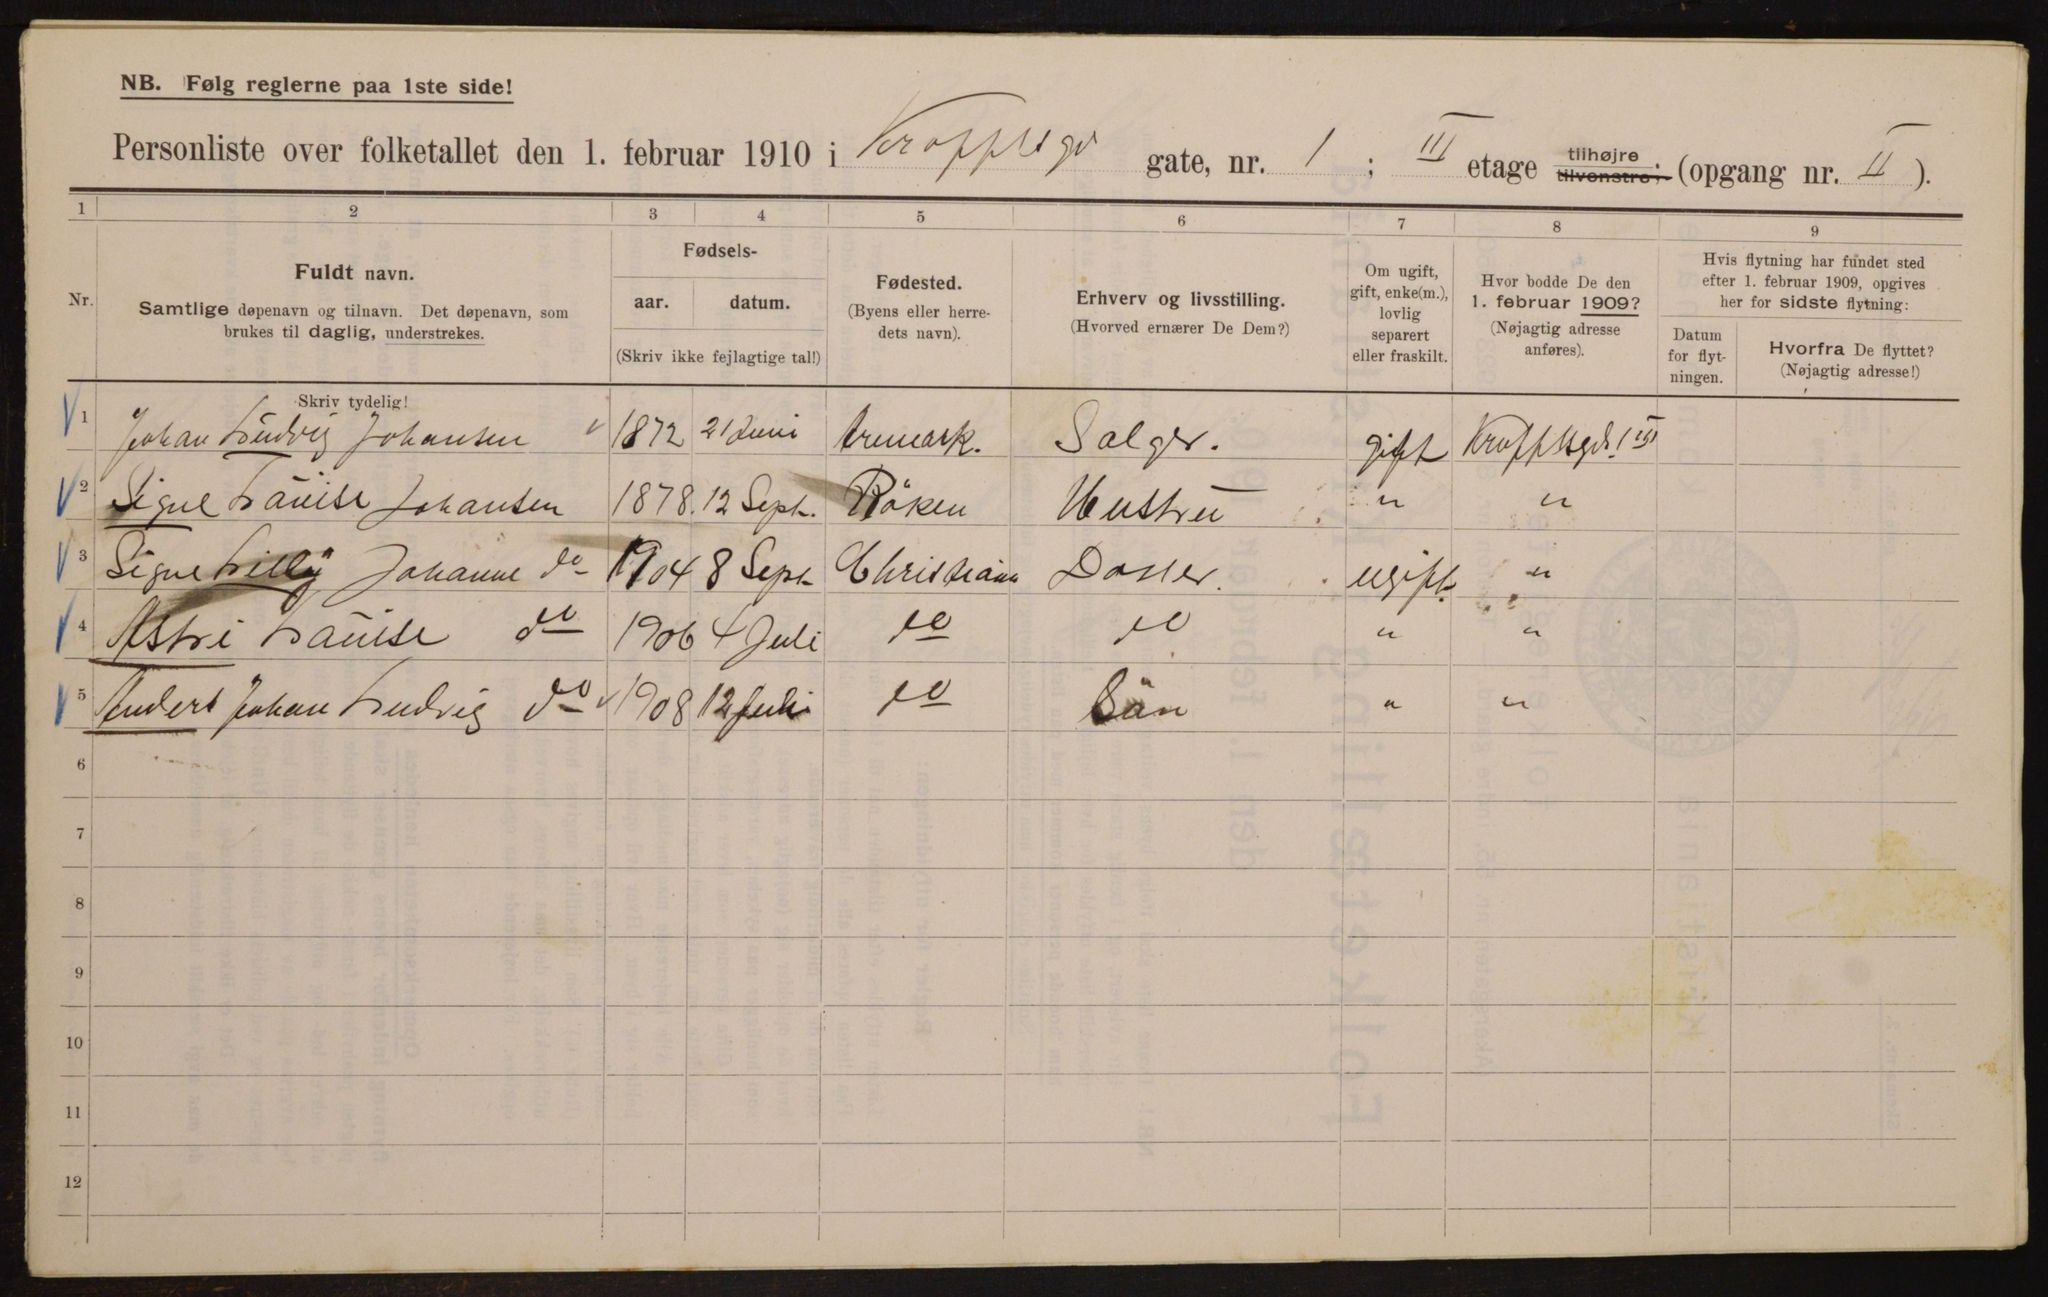 NB. Følg reglerne paa 1ste side!
Personliste over folketallet den 1. februar 1910 i Kroppsgd gate, nr. 1 ; III etage tilhøjre tilvenstre; (opgang nr. II ).
1 2 3 4 5 6 7 8 9
Nr.
Fuldt navn.
Samtlige døpenavn og tilnavn. Det døpenavn, som
brukes til daglig, understrekes.
Skriv tydelig!
Fødsels-
aar. datum.
(Skriv ikke fejlagtige tal!)
Fødested.
(Byens eller herre-
dets navn).
Erhverv og livsstilling.
(Hvorved ernærer De Dem?)
Om ugift,
gift, enke(m.),
lovlig
separert
eller fraskilt.
Hvor bodde De den
1. februar 1909?
(Nøjagtig adresse
anføres).
Hvis flytning har fundet sted
efter 1. februar 1909, opgives
her for sidste flytning:
Datum
for flyt-
ningen.
Hvorfra De flyttet?
(Nøjagtig adresse!)
1 Johan Ludvig Johansen 1872 21 Juni Aremark. Sælger. gift Kroppsgd. 1 III
2 Signe Louise Johansen 1878. 12 Sept. Röken Hustru " "
3 Signe Lilly Johanne do 1904 8 Sept Christiania Datter. ugift "
4 Astri Louise do 1906 4 Juli do do " "
5 Anders Johan Ludvig do 1908 12 Juli do Sön " "
6
7
8
9
10
11
12